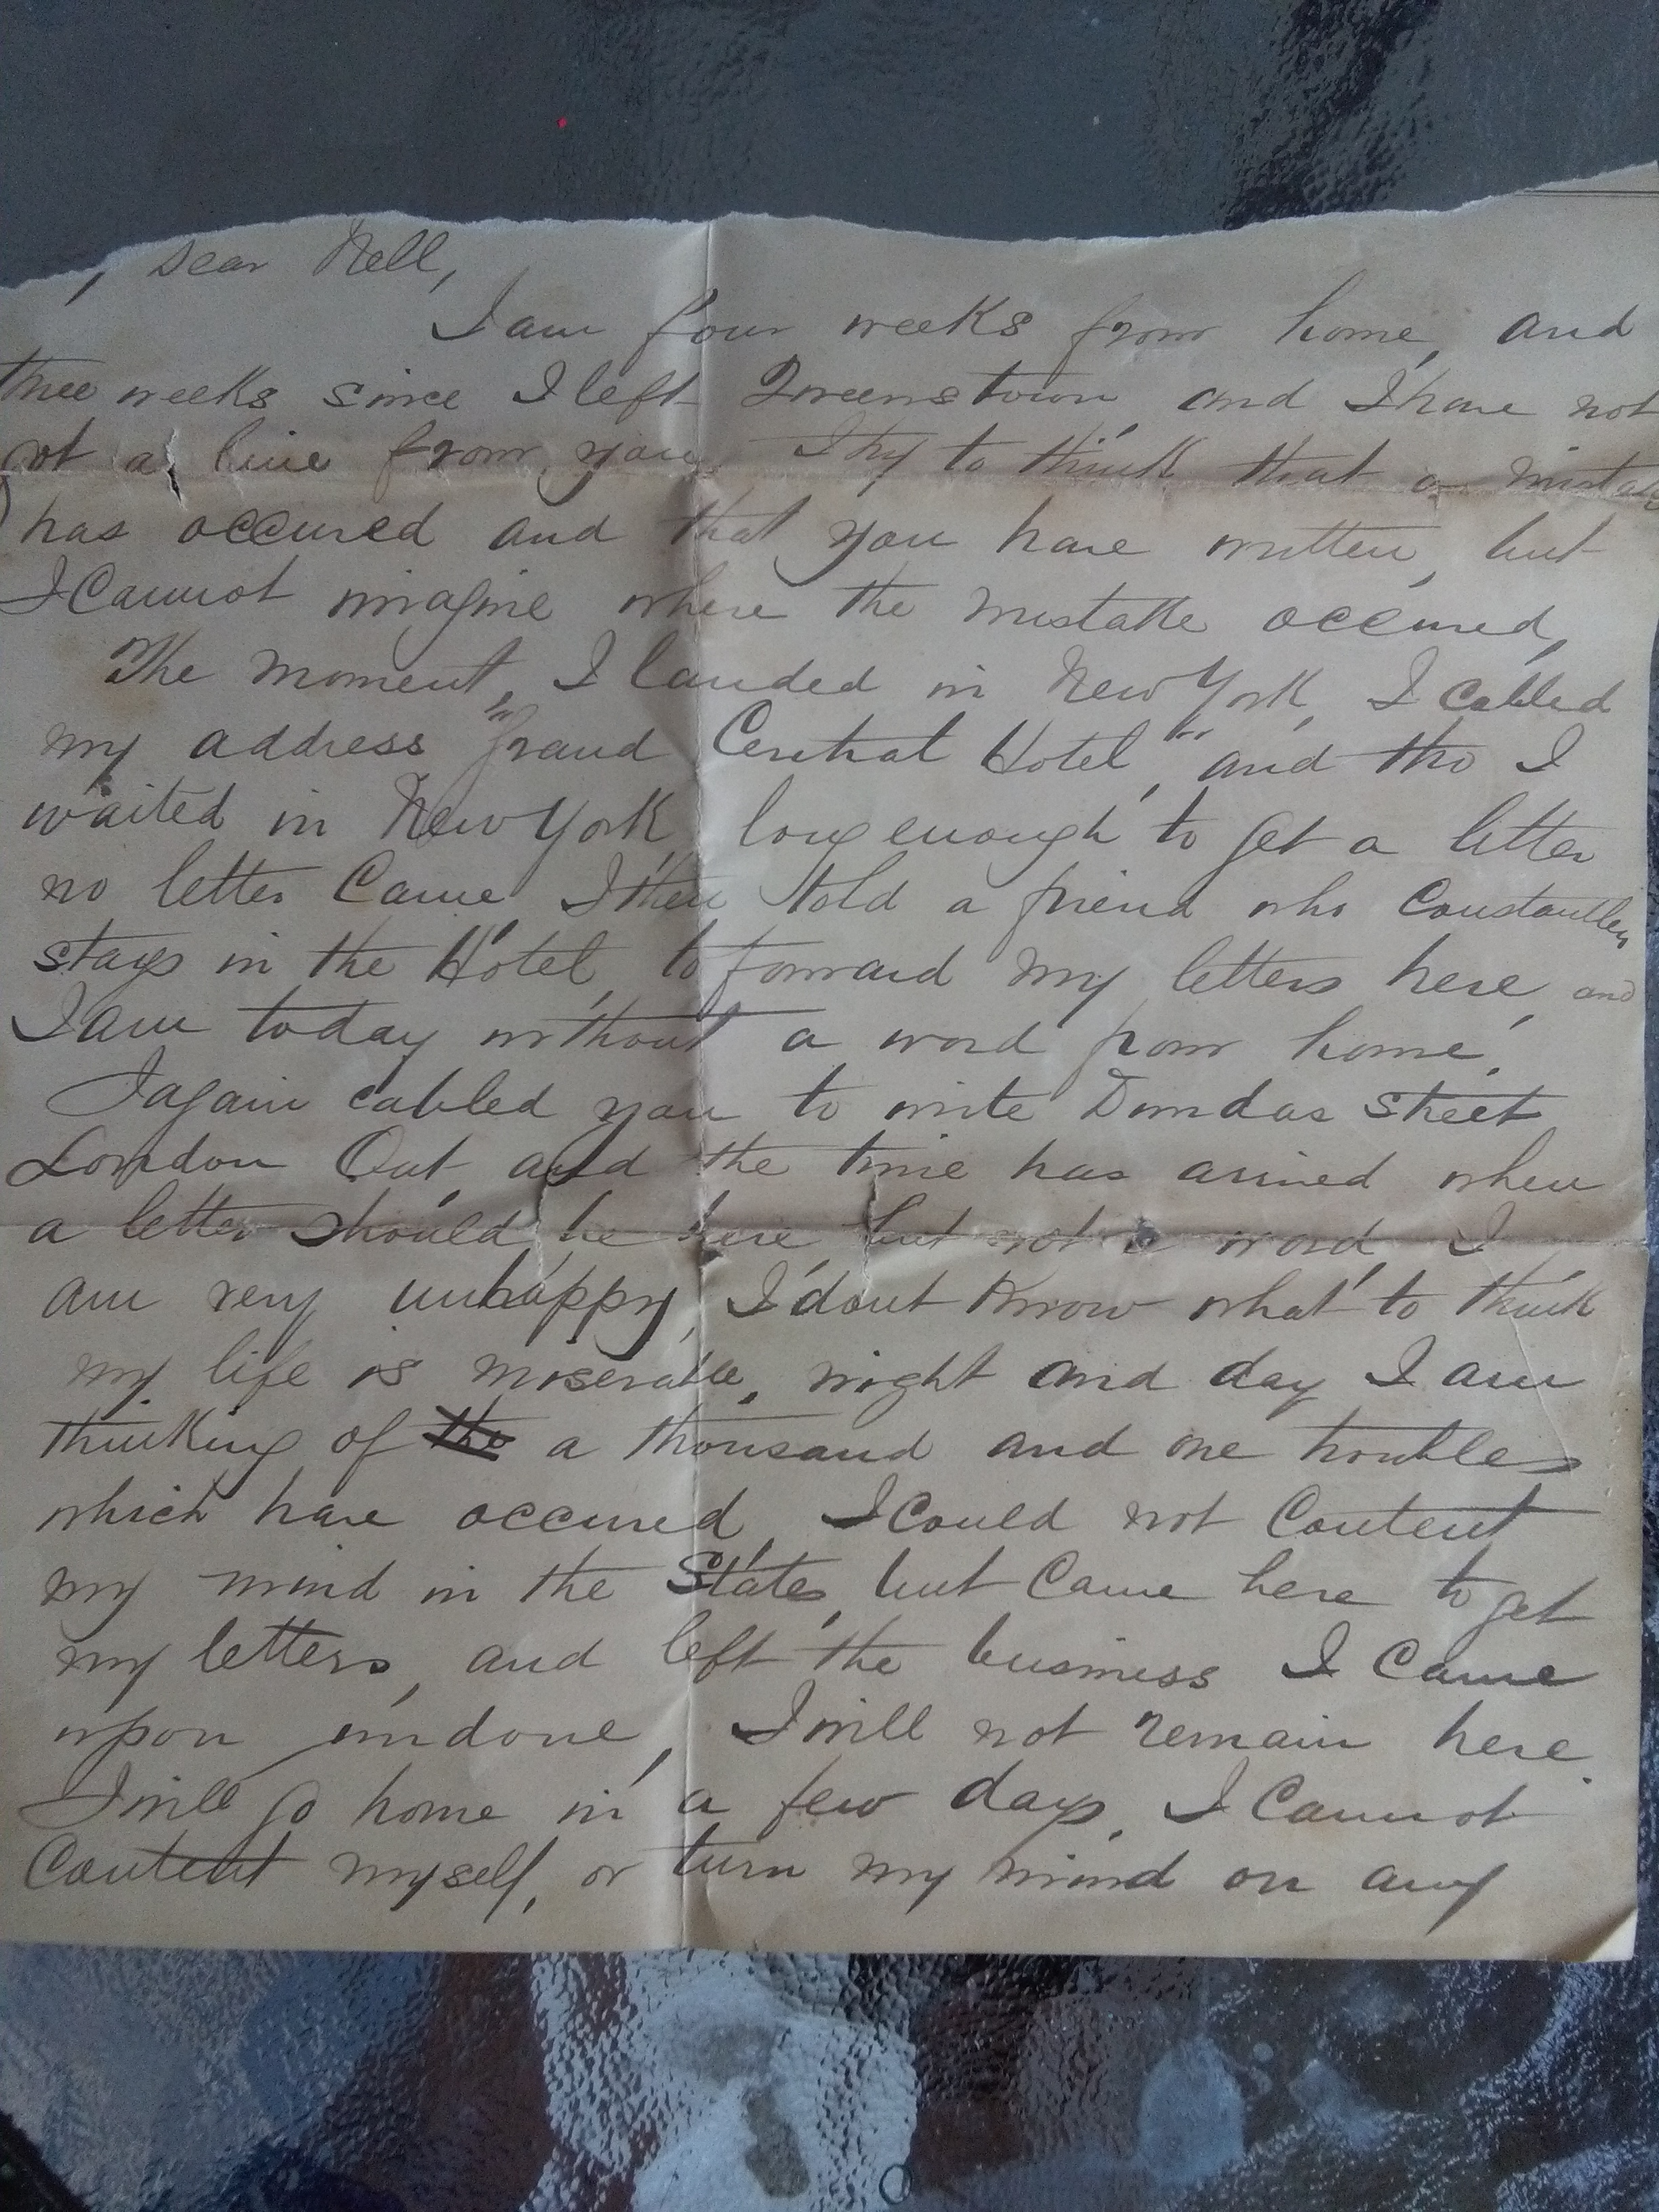 , Dear Nell,
I am four weeks from home, and
three weeks since I left Queenstown and I have not
got a line from you, I try to think that a mistake
has occured and that you have written, but
I Cannot imagine where the mistake occured,
The moment, I landed in New York, I cabled
my address "Grand Central Hotel", and tho I
waited in New York, long enough to get a letter
no letter Came, I then told a friend who Constantly
stays in the Hotel, to forward my letters here, and
I am today without a word from home,
I again cabled you to write Dundas Street
London Ont, and the time has arrived when
a letter should be here but not a word, I
am very unhappy, I dont Know what to think
my life is miserable, night and day I am
thinking of the a thousand and one troubles
which have occured, I Could not Content
my mind in the States, but Came here to get
my letters, and left the business I Came
upon undone, I will not remain here.
I will go home in a few days, I Cannot
Content myself, or turn my mind on any